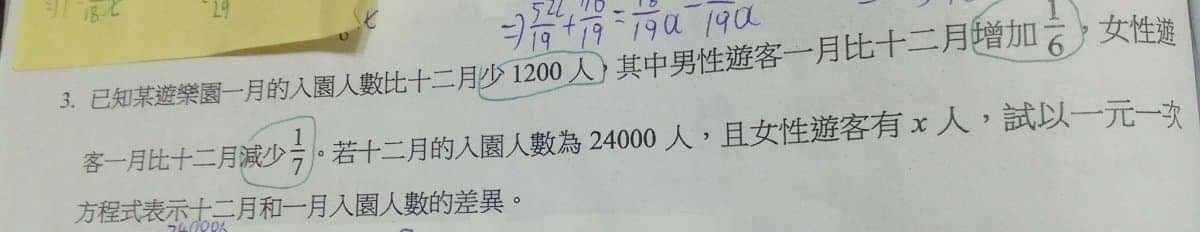 18x
29
x
⇒ 522/19 + 70/19 = 18/19 a - /19 a
3. 已知某遊樂園一月的入園人數比十二月少 1200 人,其中男性遊客一月比十二月增加 1/6,女性遊
客一月比十二月減少 1/7。若十二月的入園人數為 24000 人,且女性遊客有 x 人,試以一元一次
方程式表示十二月和一月入園人數的差異。